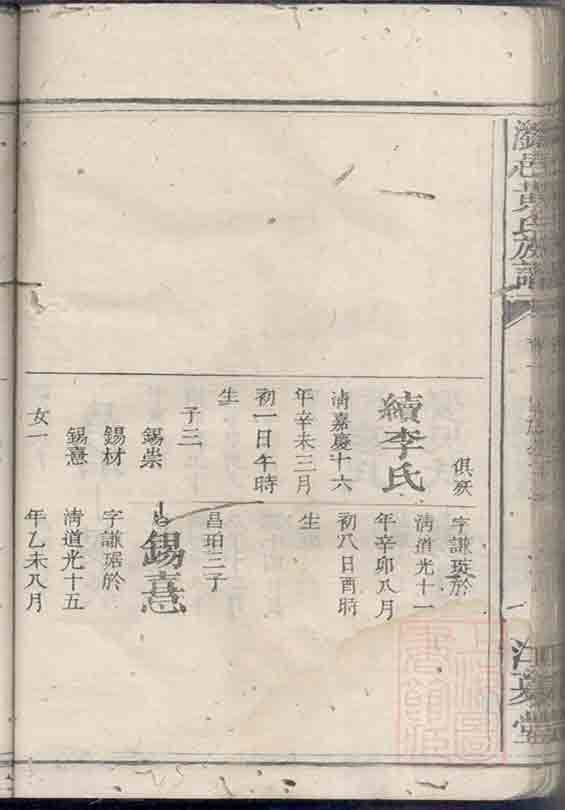 瀏邑黃氏族譜
江夏堂
俱歿
續李氏
清嘉慶十六
年辛未三月
初一日午時
生
子三
錫崇
錫材
錫憙
女一
字謙琁於
清道光十一
年辛卯八月
初八日酉時
生
昌珀三子
錫憙
字謙琚於
清道光十五
年乙未八月